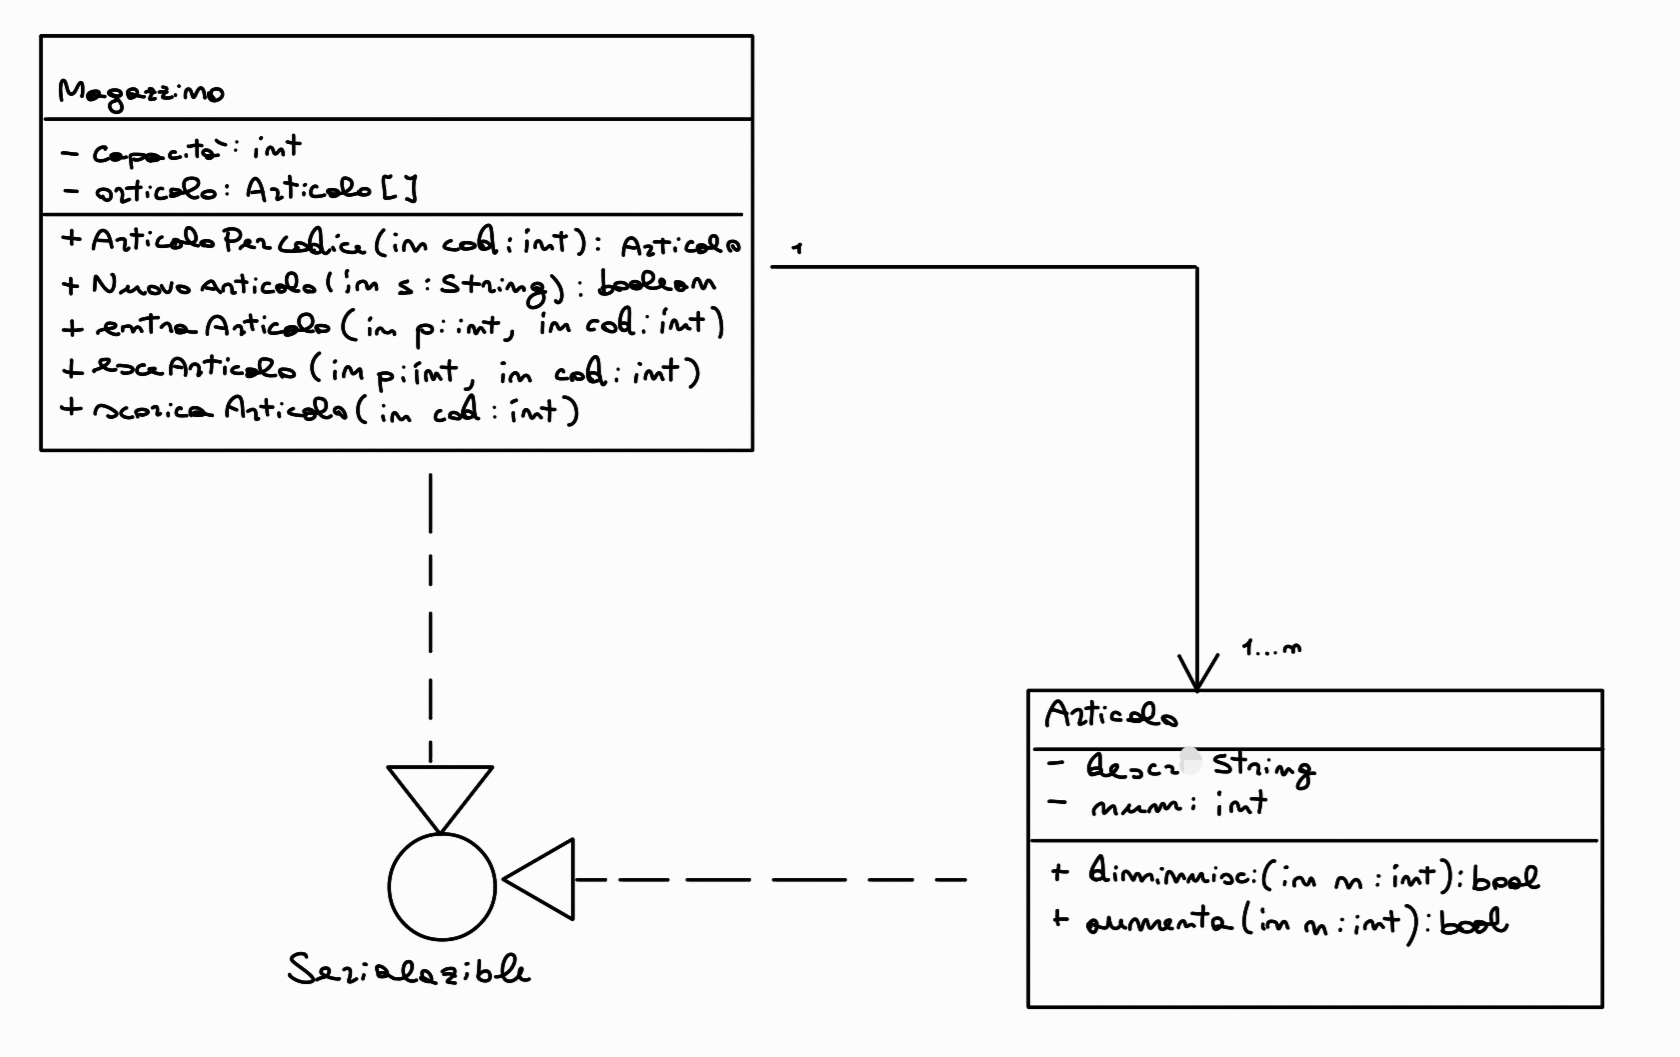 Magazzino
- capacità: int
- articolo: Articolo[]
+ ArticoloPercodice(in cod: int): Articolo
+ NuovoArticolo(in s: String): boolean
+ entraArticolo(in p: int, in cod: int)
+ esceArticolo(in p: int, in cod: int)
+ scaricaArticolo(in cod: int)
1
1...n
Articolo
- descr String
- num: int
+ diminuisci(in n: int): bool
+ aumenta(in n: int): bool
Serialazible